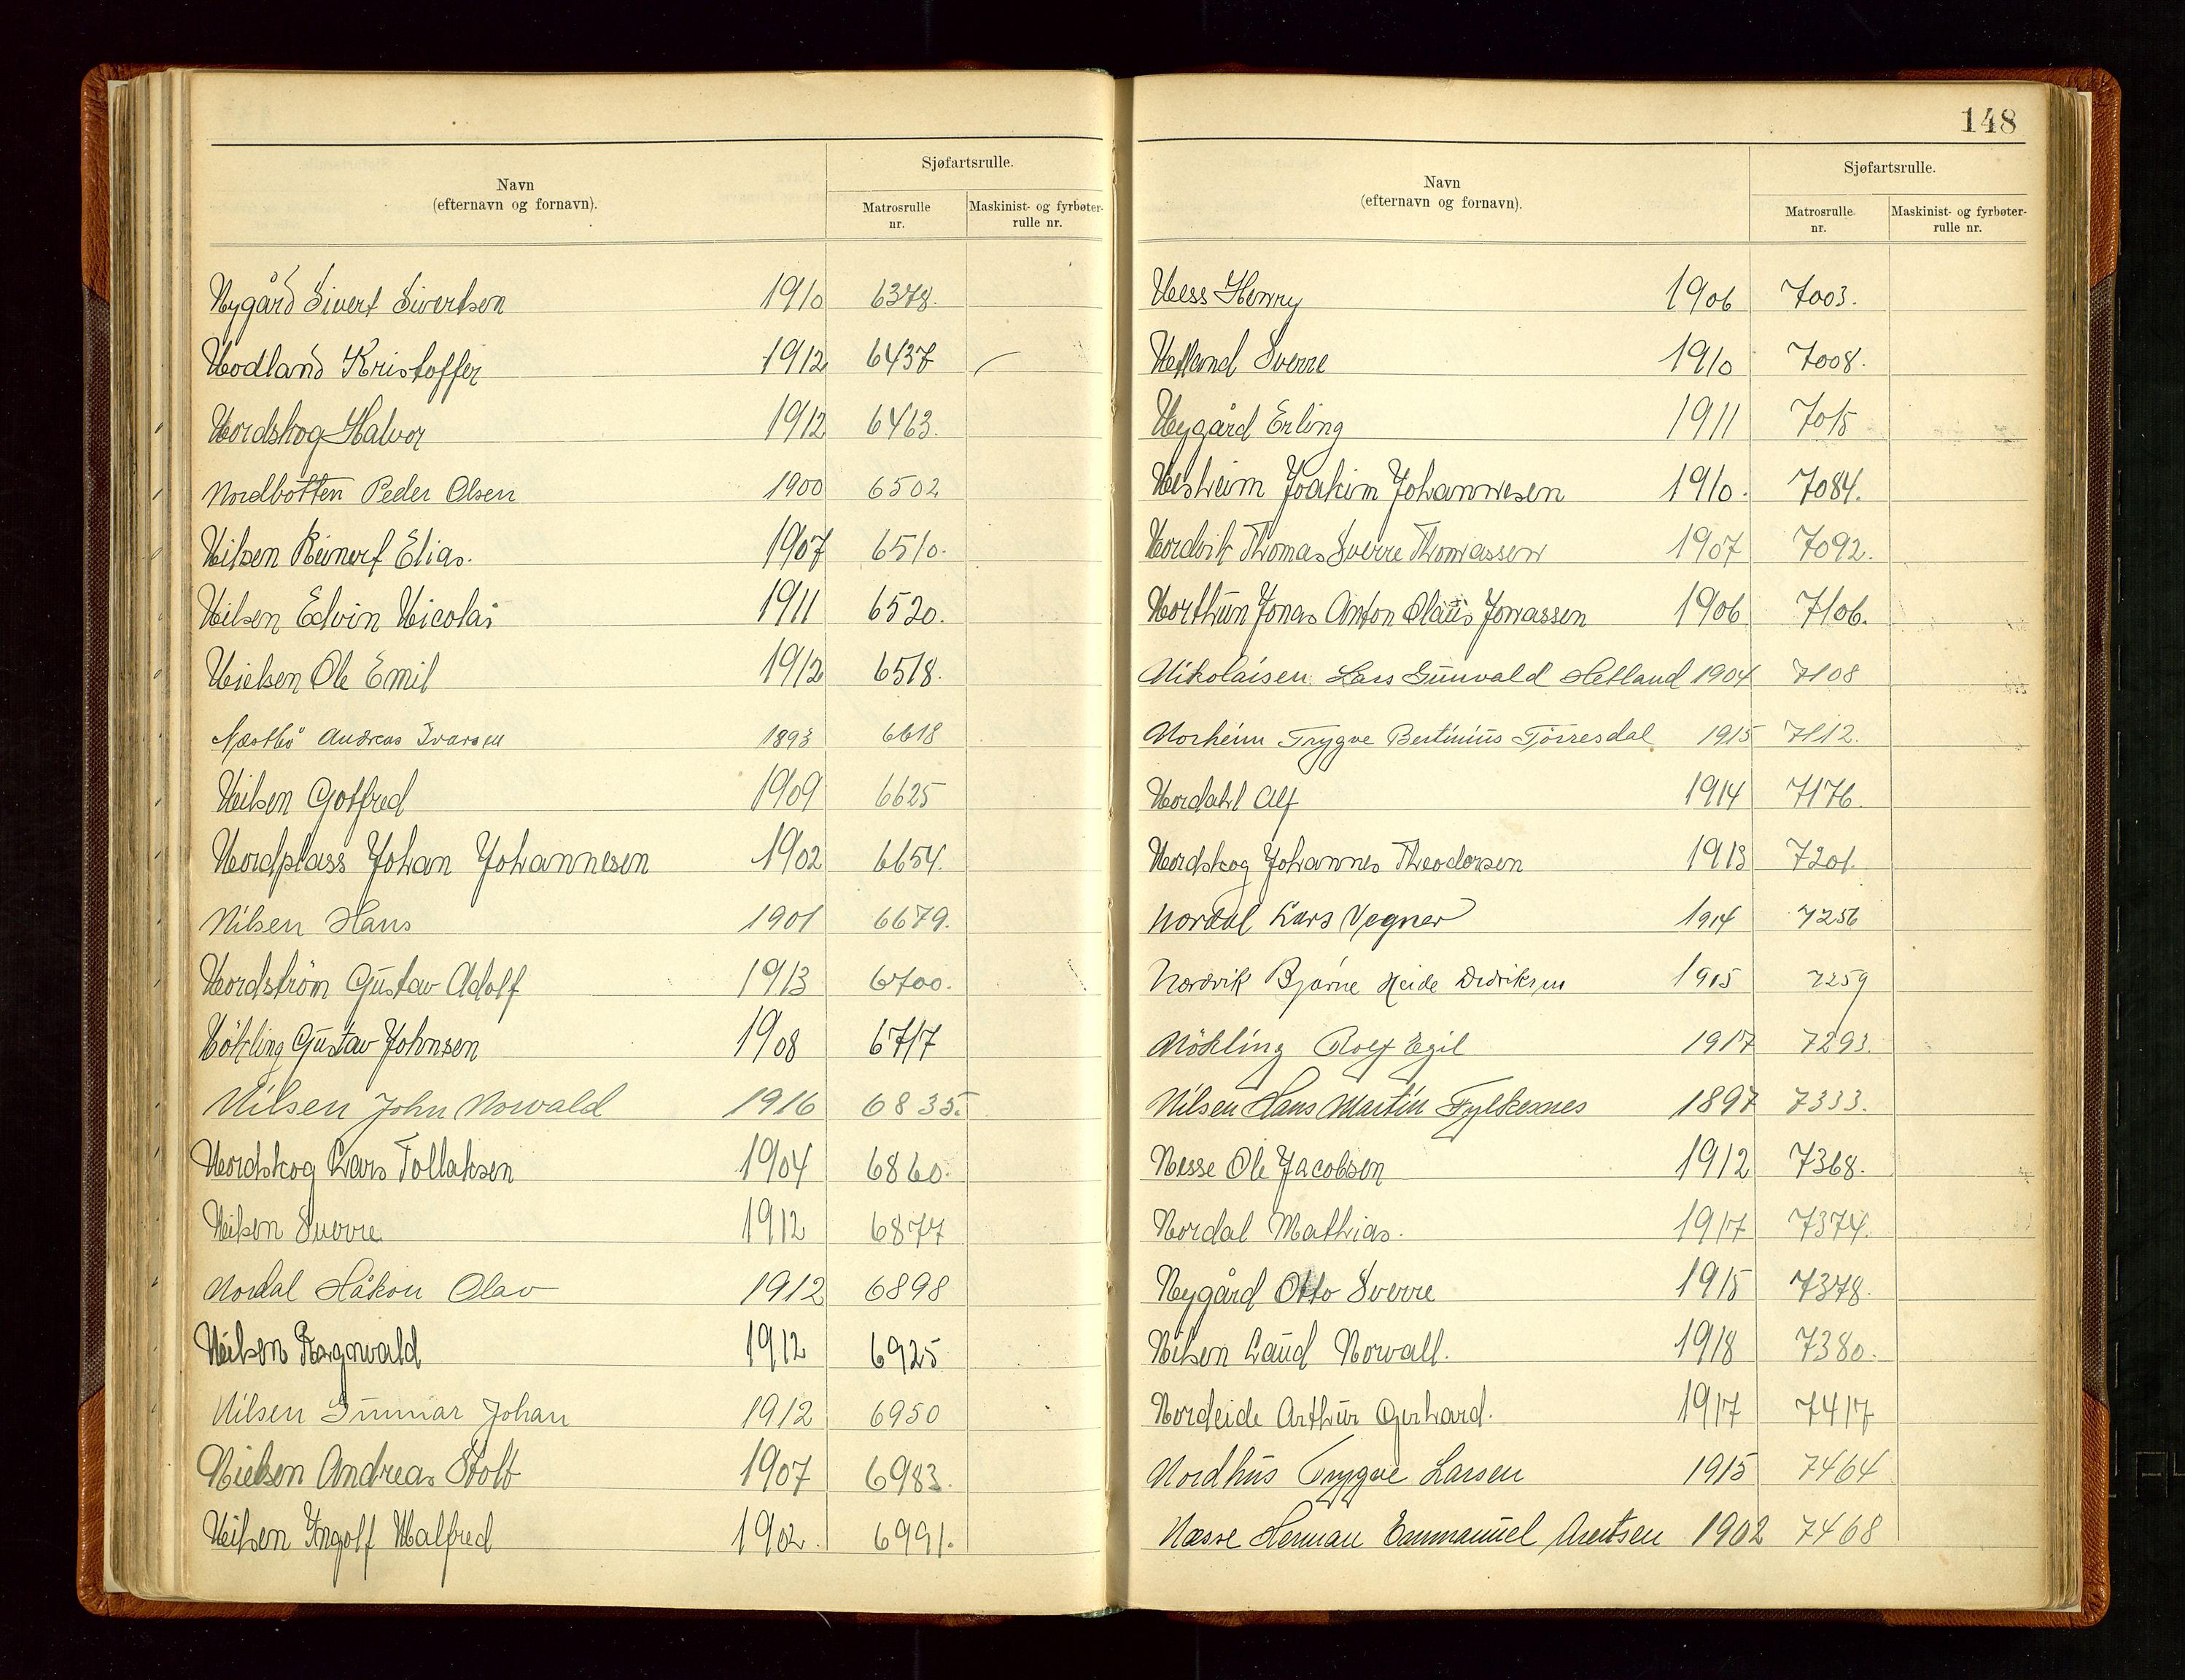 Navn
(efternavn og fornavn).
Sjøfartsrulle.
Matrosrulle nr.
Maskinist- og fyrbøter-rulle nr.
Nygård Sivert Sivertsen 1910 6378.
Nodland Kristoffer 1912 6437
Nordskog Halvor 1912 6463.
Nordbotten Peder Olsen 1900 6502
Nilsen Reinert Elias. 1907 6510.
Nilsen Edvin Nicolai 1911 6520.
Nielsen Ole Emil 1912 6518.
Næstbö Andreas Ivarsen 1893 6618
Nilsen Gotfred 1909 6625
Nordplass Johan Johannesen 1902 6654.
Nilsen Hans 1901 6679.
Nordström Gustav Adolf 1913 6700.
Nökling Gustav Johnsen 1908 6717
Nilsen John Norvald 1916 6835.
Nordskog Lars Tollaksen 1904 6860.
Nilsen Sverre 1912 6877
Nordal Håkon Olav 1912 6898
Nilsen Ragnvald 1912 6925
Nilsen Gunnar Johan 1912 6950
Nielsen Andreas Stolt 1907 6983.
Nilsen Ingolf Malfred 1902. 6991.
148
Navn
(efternavn og fornavn).
Sjøfartsrulle.
Matrosrulle nr.
Maskinist- og fyrbøter-rulle nr.
Ness Henry 1906 7003.
Netland Sverre 1910 7008.
Nygård Erling 1911 7015
Nesheim Joakim Johannesen 1910. 7084.
Nordvik Thomas Sverre Thomassen 1907 7092.
Northun Jonas Anton Olaus Jonassen 1906 7106.
Nikolaisen Lars Gunvald Hetland 1904 7108
Norheim Trygve Bertinius Törresdal 1915 7112.
Nordahl Alf 1914 7176.
Nordskog Johannes Theodorsen 1913 7201.
Nordal Lars Vegner 1914 7256
Nordvik Bjarne Heide Didriksen 1915 7259
Nökling Rolf Egil 1917 7293.
Nilsen Hans Martin Fylkesnes 1897 7333.
Nesse Ole Jacobsen 1912 7368.
Nordal Mathias. 1917 7374.
Nygård Otto Sverre 1915 7378.
Nilsen Laud Norvall. 1918 7380.
Nordeide Arthur Gerhard. 1917 7417
Nordhus Trygve Larsen 1915 7464
Næsse Herman Emmanuel Arentsen 1902 7468